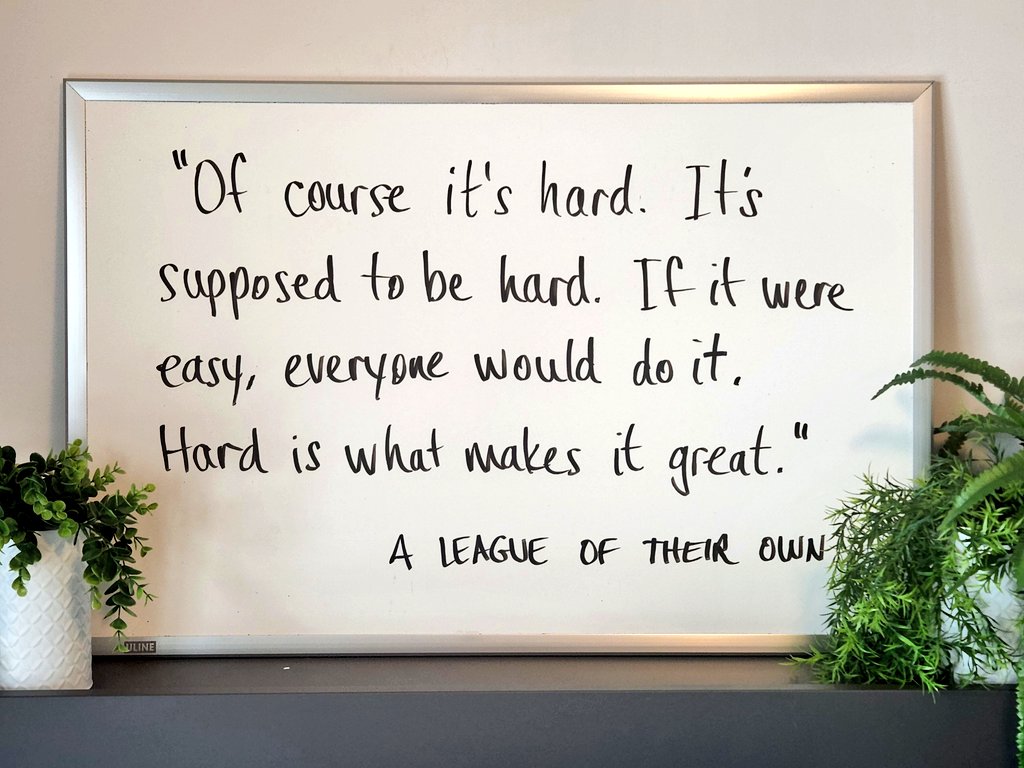 "Of course it's hard. It's
supposed to be hard. If it were
easy, everyone would do it.
Hard is what makes it great."
A LEAGUE OF THEIR OWN
ULINE